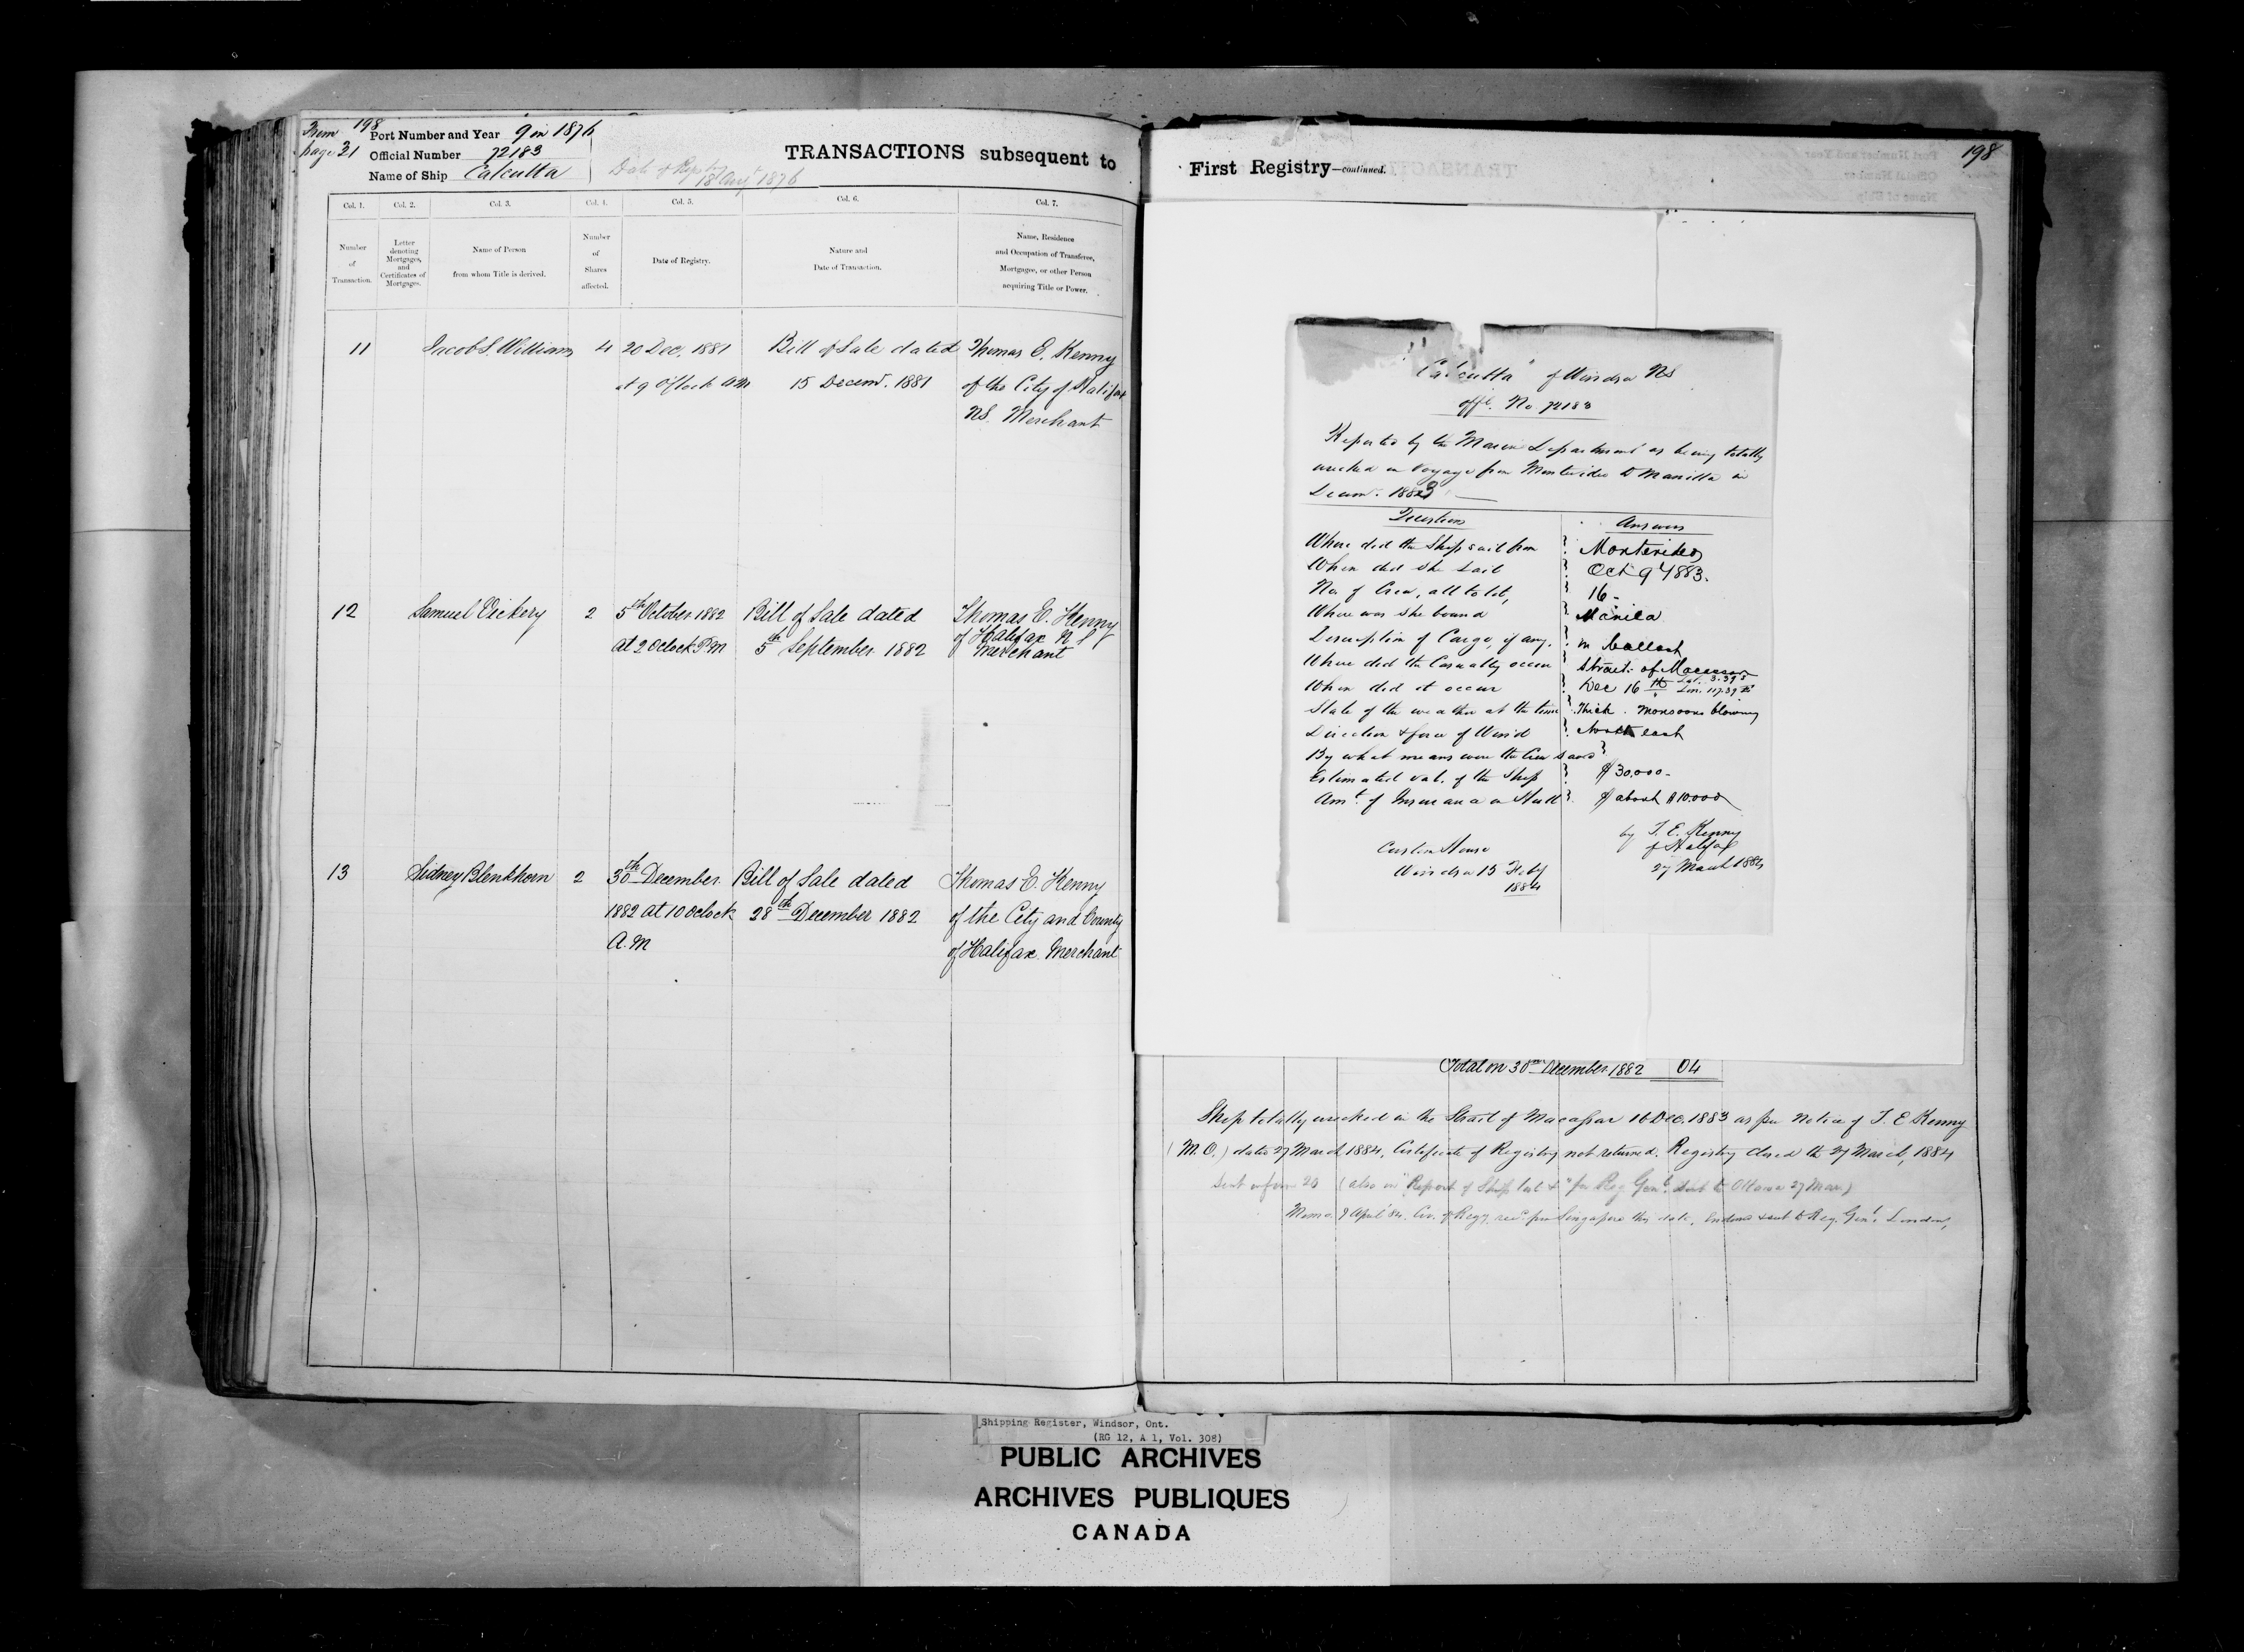 From 198
page 31
Port Number and Year 9 in 1876
Official Number 72183
Name of Ship Calcutta
18 Augt 1876
TRANSACTIONS subsequent to
Col. 1. Col. 2. Col. 3. Col. 4. Col. 5. Col. 6. Col. 7.
Number of Transaction.
Letter denoting Mortgages, and Certificates of Mortgages.
Name of Person from whom Title is derived.
Number of Shares affected.
Date of Registry.
Nature and Date of Transaction.
Name, Residence and Occupation of Transferee, Mortgagee, or other Person acquiring Title or Power.
11 Jacob S. Williams 4 20 Dec. 1881 Bill of Sale dated Thomas E. Kenny
at 9 o'clock AM 15 Decemr. 1881 of the City of Halifax
NS. Merchant
12 Samuel Vickery 2 5th October 1882 Bill of Sale dated Thomas E. Kenny
at 2 oclock P.M 5th September 1882 of Halifax N S
Merchant
13 Sidney Blenkhorn 2 30th December Bill of Sale dated Thomas E. Kenny
1882 at 10 oclock 28th December 1882 of the City and County
A.M of Halifax. Merchant
First Registry—continued.
198
"Calcutta" of Windsor NS
offl. No 72183
Reported by the Marine Department as being totally
wrecked on voyage from Montevideo to Manilla in
Decemr. 1883
Questions Answers
Where did the Ship sail from Montevideo
When did she sail Oct 9th 1883.
No. of Crew, all told, 16-
Where was she bound Manila
Description of Cargo, if any. in ballast
Where did the Casualty occur Strait of Macassar
Lat. 3.39 S
When did it occur Dec 16th Lon. 117.39 E
State of the weather at the time Thick. Monsoons blowing
Direction & force of Wind North east
By what means were the Crew saved
Estimated val. of the Ship $30.000-
Amt. of Insurance on Hull $ about $10.000
by T. E. Kenny
of Halifax
27 March 1884
Custom House
Windsor 15 Feby
1884
Total on 30th December 1882 64
Ship totally wrecked in the Strait of Macassar 16 Dec. 1883 as per Notice of T. E Kenny
(M.O.) dated 27 March 1884, Certificate of Registry not returned. Registry closed the 27 March, 1884
Sent on form 20 (also in "Report of Ship lost &" for Reg Genl. sent to Ottawa 27 Mar.)
Memo. 7 April '84. Cer. of Regy. recd. from Singapore this date, sent to Reg. Genl. London,
Shipping Register, Windsor, Ont.
(RG 12, A 1, Vol. 308)
PUBLIC ARCHIVES
ARCHIVES PUBLIQUES
CANADA